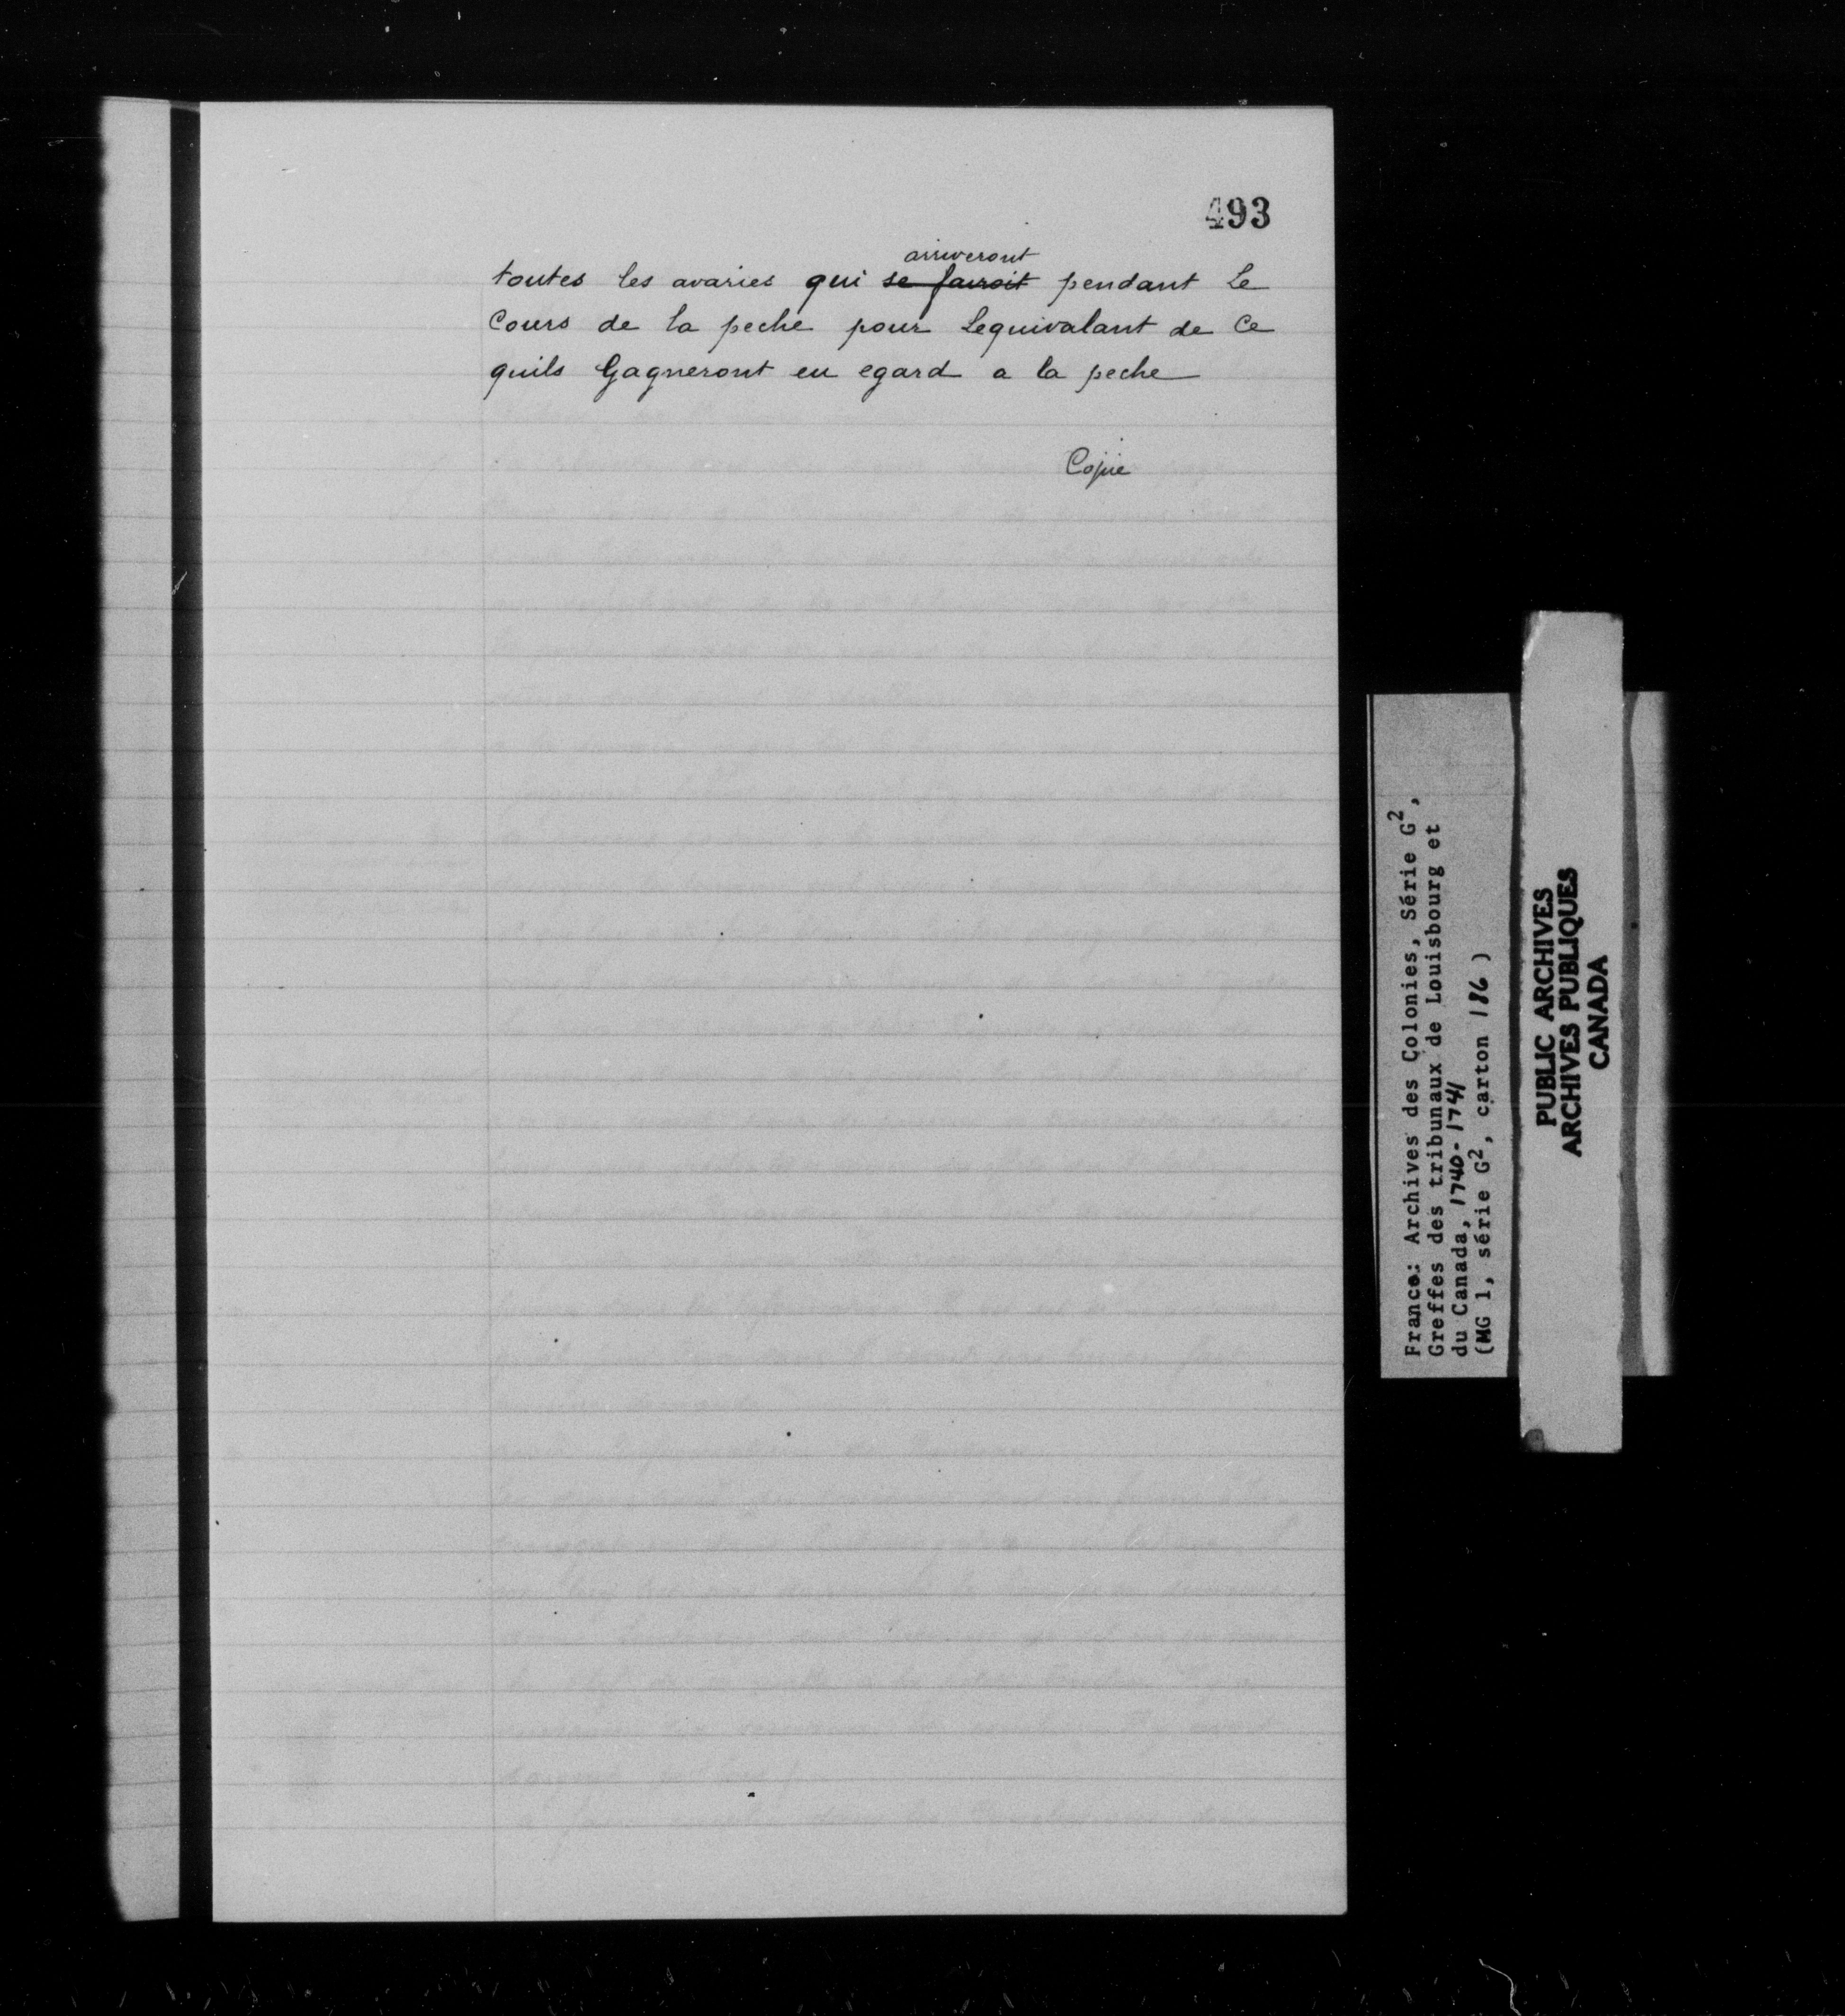 493
arriveront
toutes les avaries qui se fairoit pendant Le
Cours de la peche pour Lequivalant de Ce
quils Gagneront eu egard a la peche
Copie
France: Archives des Colonies, Série G²,
Greffes des tribunaux de Louisbourg et
du Canada, 1740-1741
(MG 1, série G², carton 186)
PUBLIC ARCHIVES
ARCHIVES PUBLIQUES
CANADA